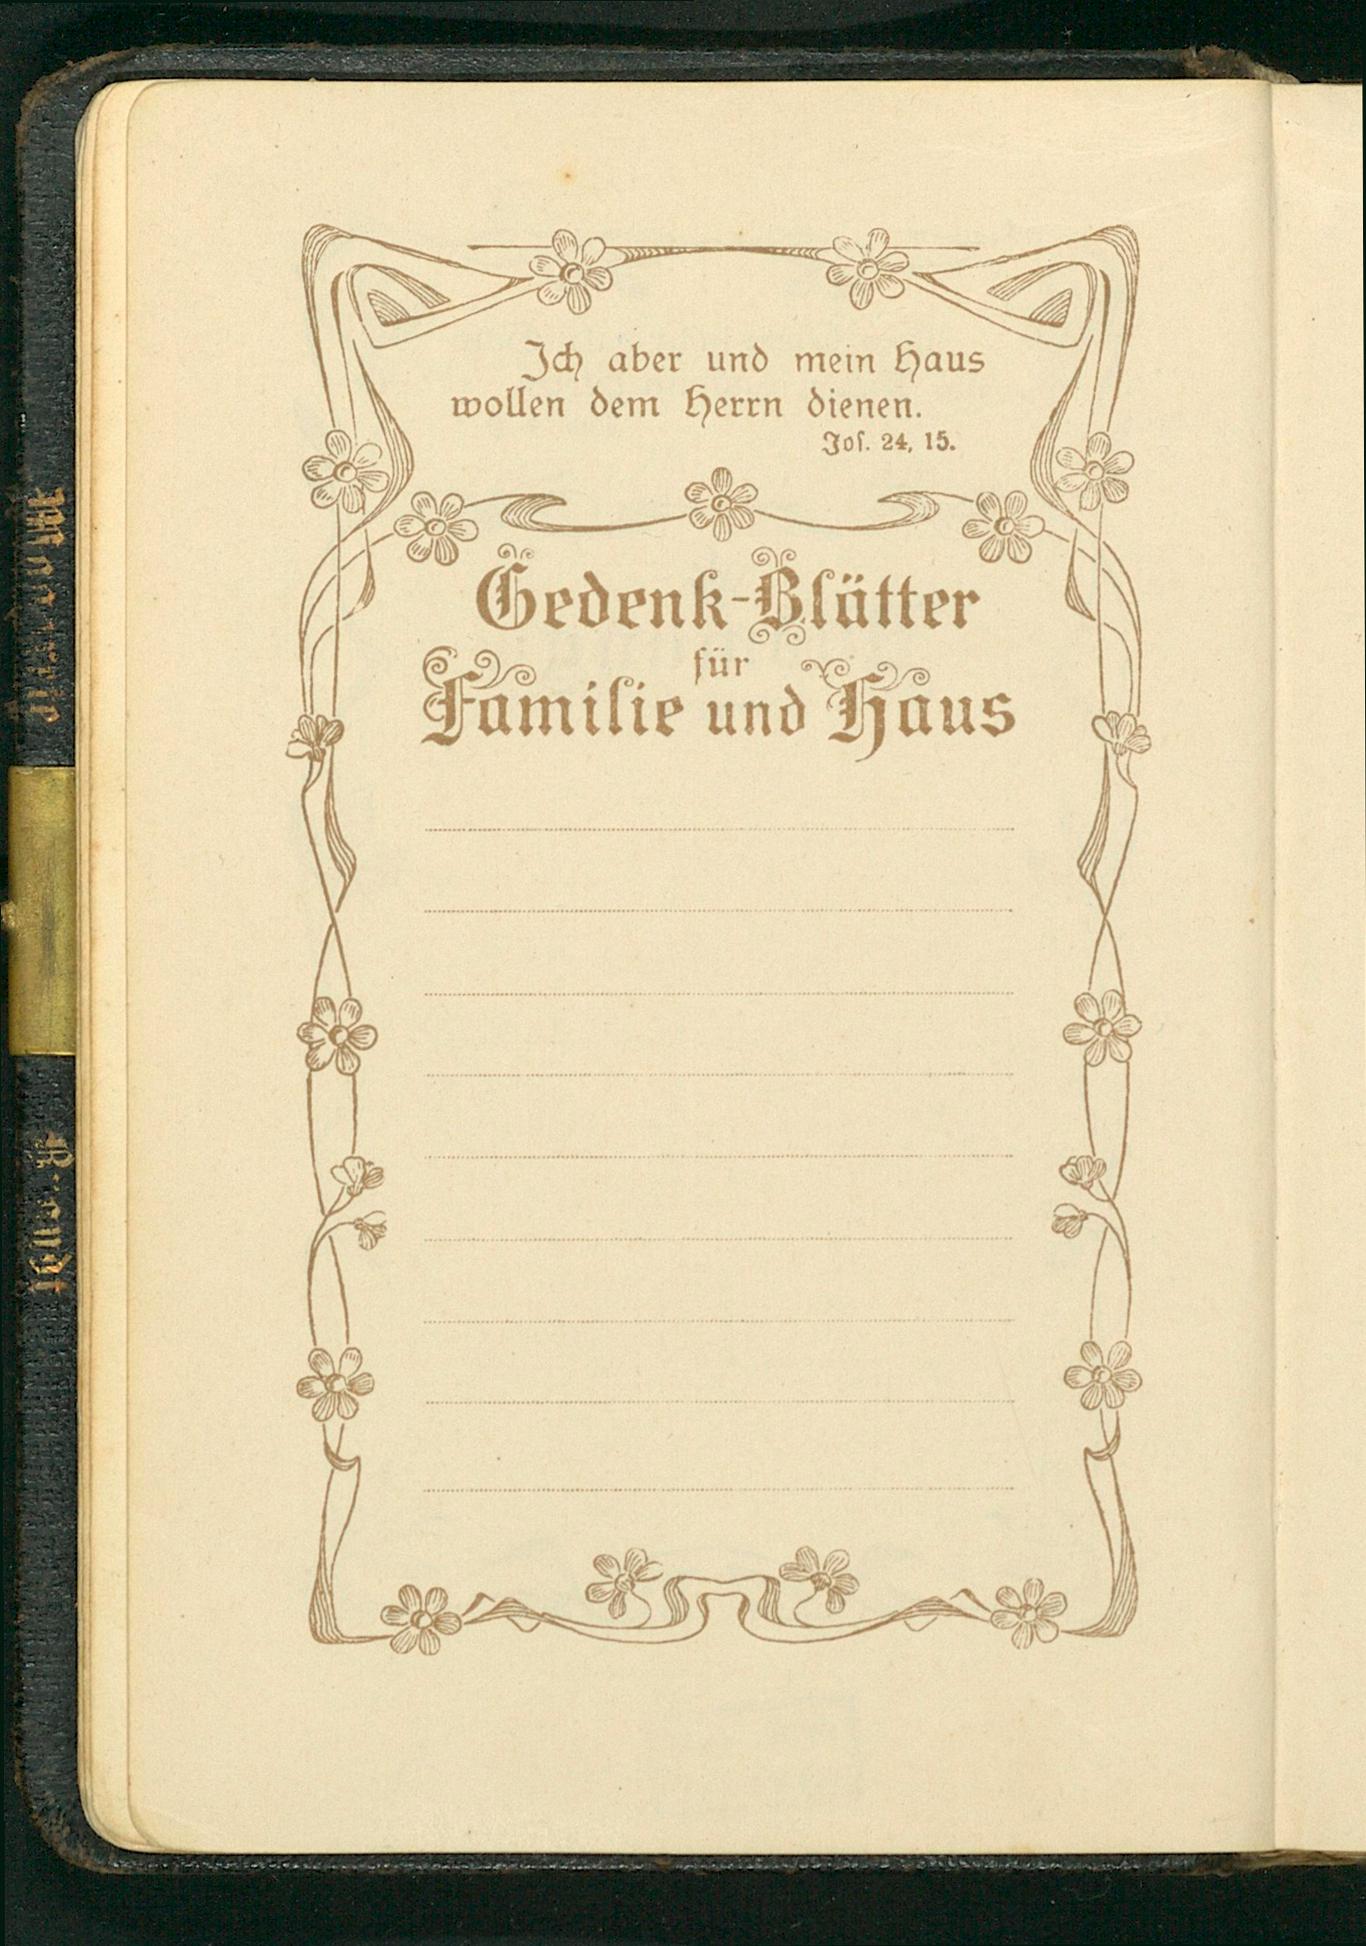 Ich aber und mein Haus
wollen dem Herrn dienen.
Jos. 24, 15.
Gedenk-Blätter
für
Familie und Haus